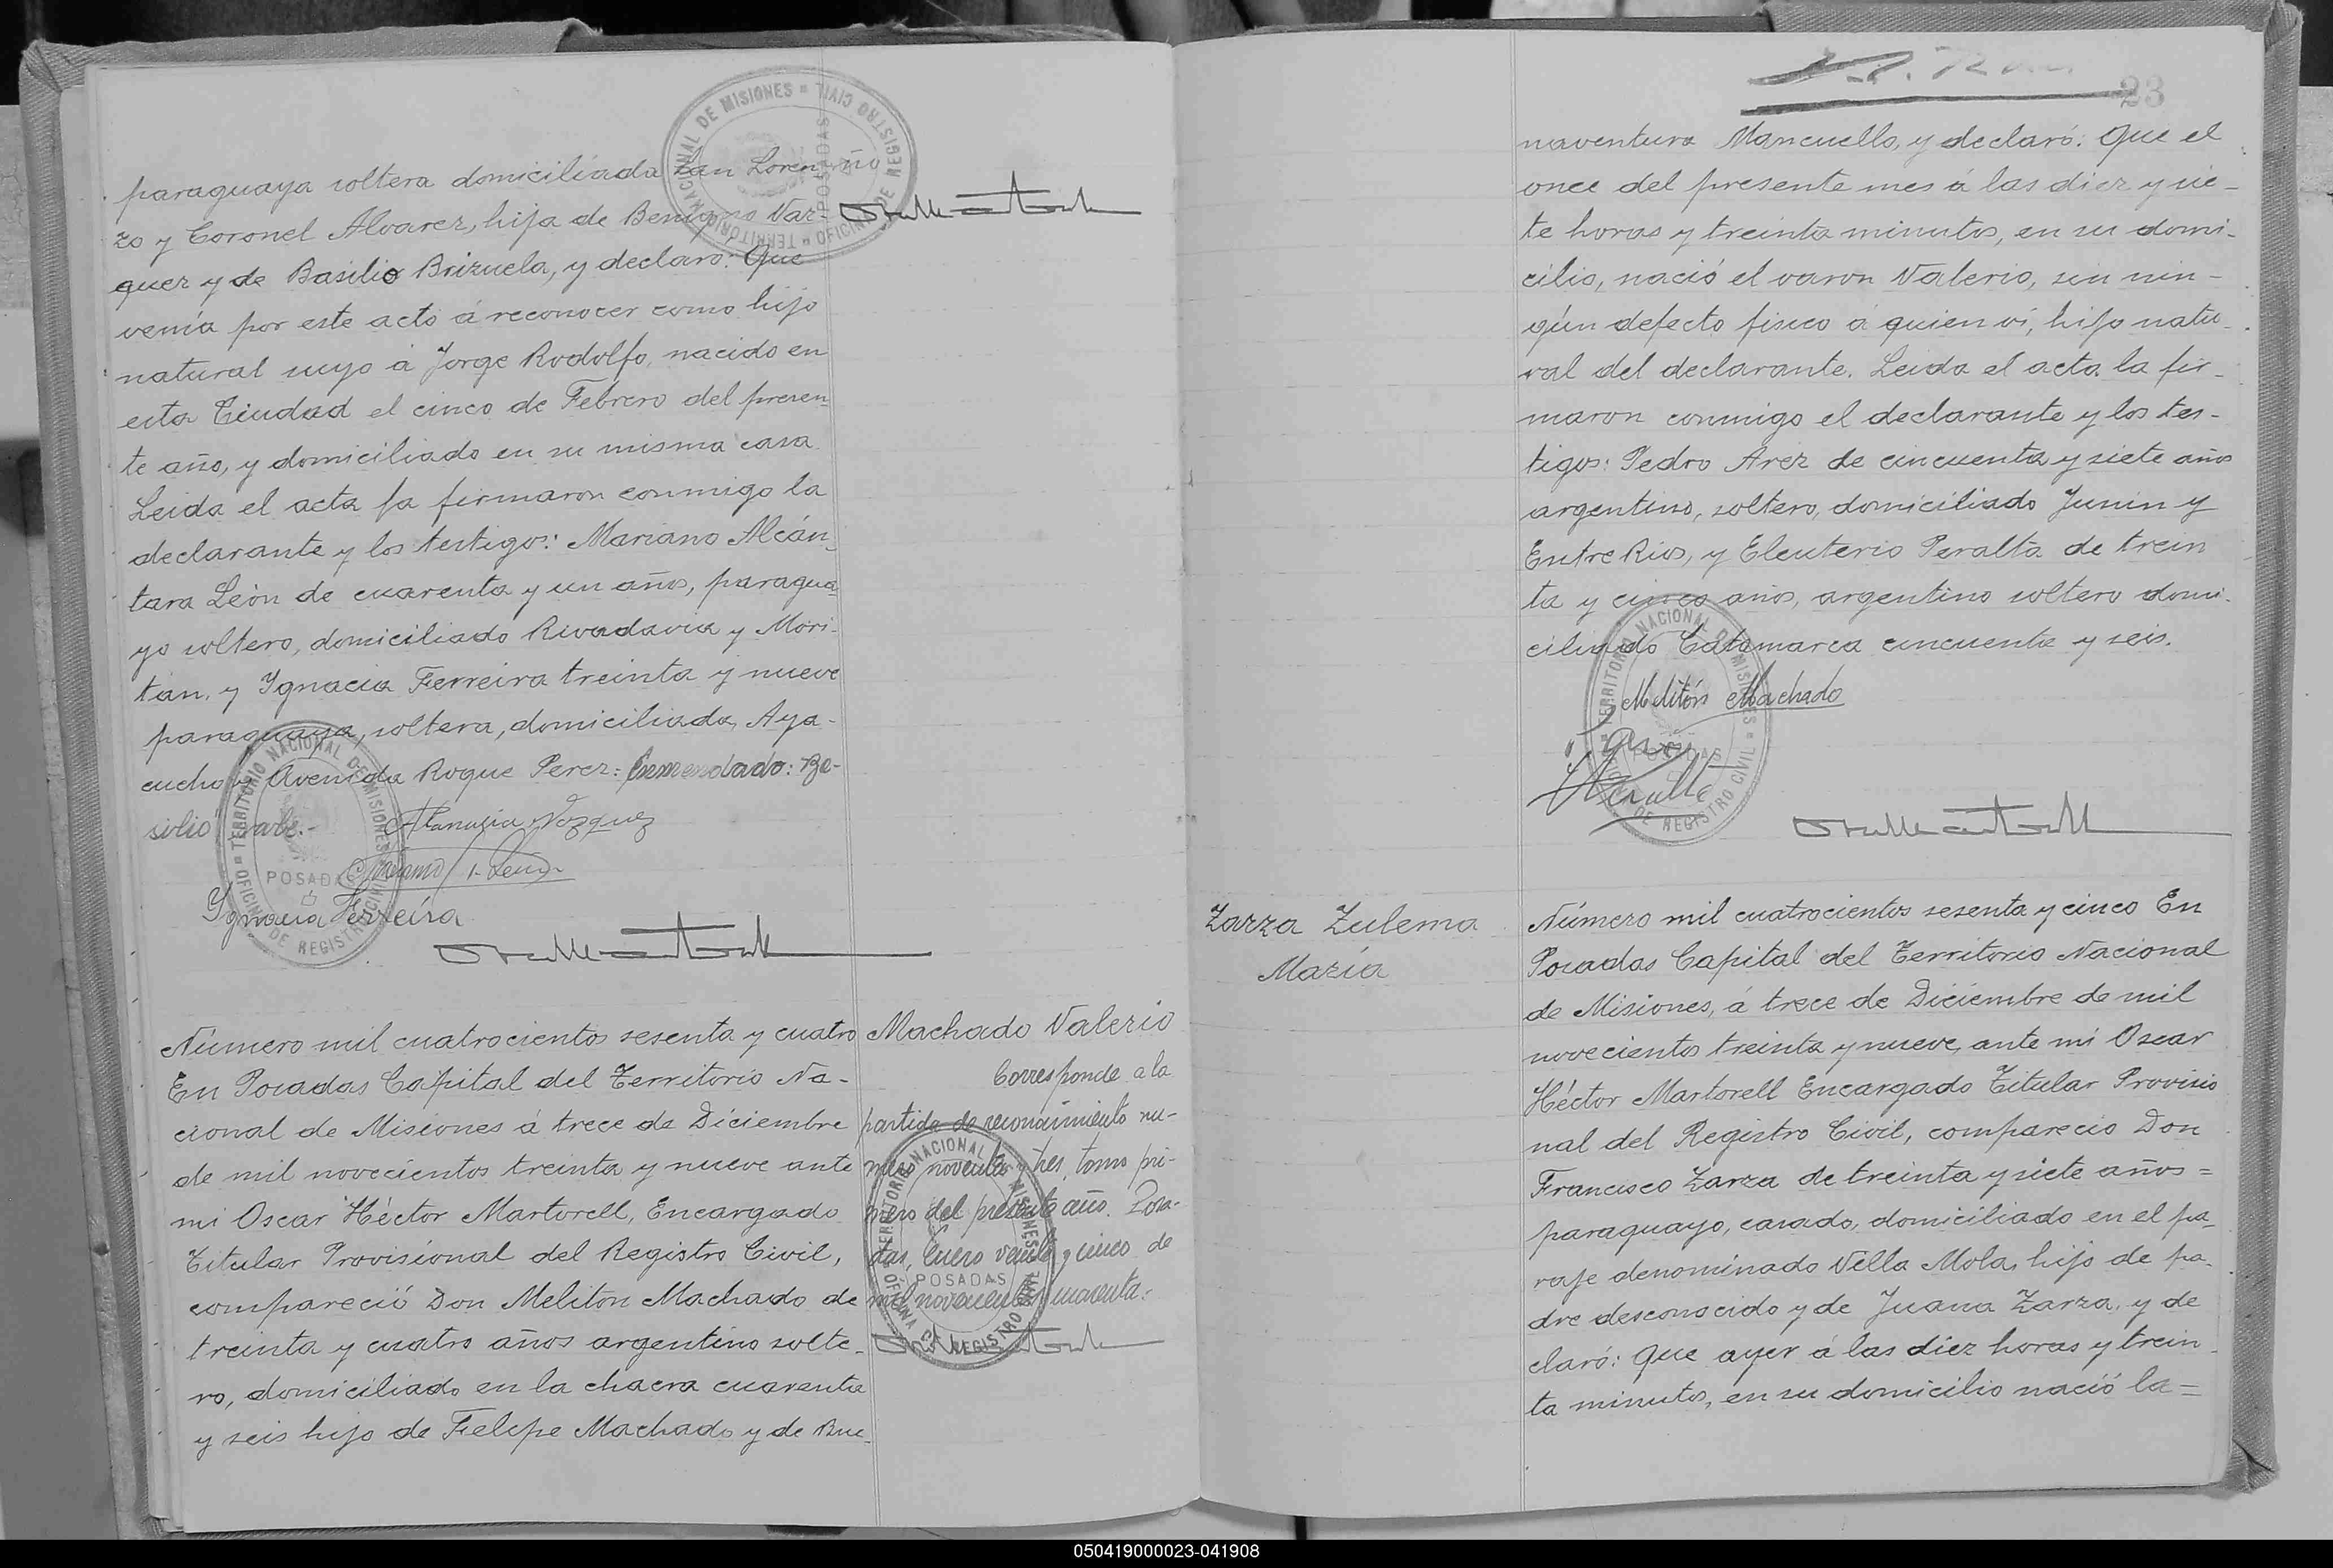 paraguaya soltera domiciliada San Loren-
zo y Coronel Alvarez, hija de Benigno Vaz-
quez y de Basilio Brizuela, y declaró: Que
venía por este acto á reconocer como hijo
natural suyo á Jorge Rodolfo, nacido en
esta Ciudad el cinco de Febrero del presen
te año, y domiciliado en su misma casa
Leida el acta la firmaron conmigo la
declarante y los testigos: Mariano Alcán-
tara León de cuarenta y un años, paragua
yo soltero, domiciliado Rivadavia y Mori-
tán, y Ygnacia Ferreira treinta y nueve
paraguaya, soltera, domiciliada Aya-
cucho y Avenida Roque Perez: Enmendado: Ba-
silio" vale.-
Atanasia Vázquez
Mariano A. León
Ygnacia Ferreira
TERRITORIO NACIONAL DE MISIONES
OFICINA DE REGISTRO CIVIL
POSADAS
Número mil cuatrocientos sesenta y cuatro
En Posadas Capital del Territorio Na-
cional de Misiones á trece de Diciembre
de mil novecientos treinta y nueve ante
mi Oscar Héctor Martorell, Encargado
Titular Provisional del Registro Civil,
compareció Don Meliton Machado de
treinta y cuatro años argentino solte-
ro, domiciliado en la chacra cuarenta
y seis hijo de Felipe Machado y de Bue-
TERRITORIO NACIONAL DE MISIONES
OFICINA DE REGISTRO CIVIL
POSADAS
Machado Valerio
Corresponde a la
partida de reconocimiento nu-
mero noventa y tres, tomo pri-
mero del presente año. Posa-
das, Enero veinte y cinco de
mil novecientos cuarenta.-
TERRITORIO NACIONAL DE MISIONES
OFICINA DE REGISTRO CIVIL
POSADAS
23
naventura Mancuello, y declaró: Que el
once del presente mes á las diez y sie-
te horas y treinta minutos, en su domi-
cilio, nació el varon Valerio, sin nin-
gún defecto fisico á quien ví, hijo natu-
ral del declarante. Leida el acta la fir-
maron conmigo el declarante y los tes-
tigos: Pedro Arez de cincuenta y siete años
argentino, soltero, domiciliado Junin y
Entre Rios, y Eleuterio Peralta de trein
ta y cinco años, argentino soltero domi-
ciliado Catamarca cincuenta y seis.
Melitón Machado
TERRITORIO NACIONAL DE MISIONES
OFICINA DE REGISTRO CIVIL
POSADAS
Zarza Zulema
María
Número mil cuatrocientos sesenta y cinco En
Posadas Capital del Territorio Nacional
de Misiones, á trece de Diciembre de mil
novecientos treinta y nueve, ante mi Oscar
Héctor Martorell Encargado Titular Provisio
nal del Registro Civil, compareció Don
Francisco Zarza de treinta y siete años=
paraguayo, casado, domiciliado en el pa-
raje denominado Villa Mola, hijo de pa-
dre desconocido y de Juana Zarza, y de
claró: Que ayer á las diez horas y trein
ta minutos, en su domicilio nació la=
050419000023-041908